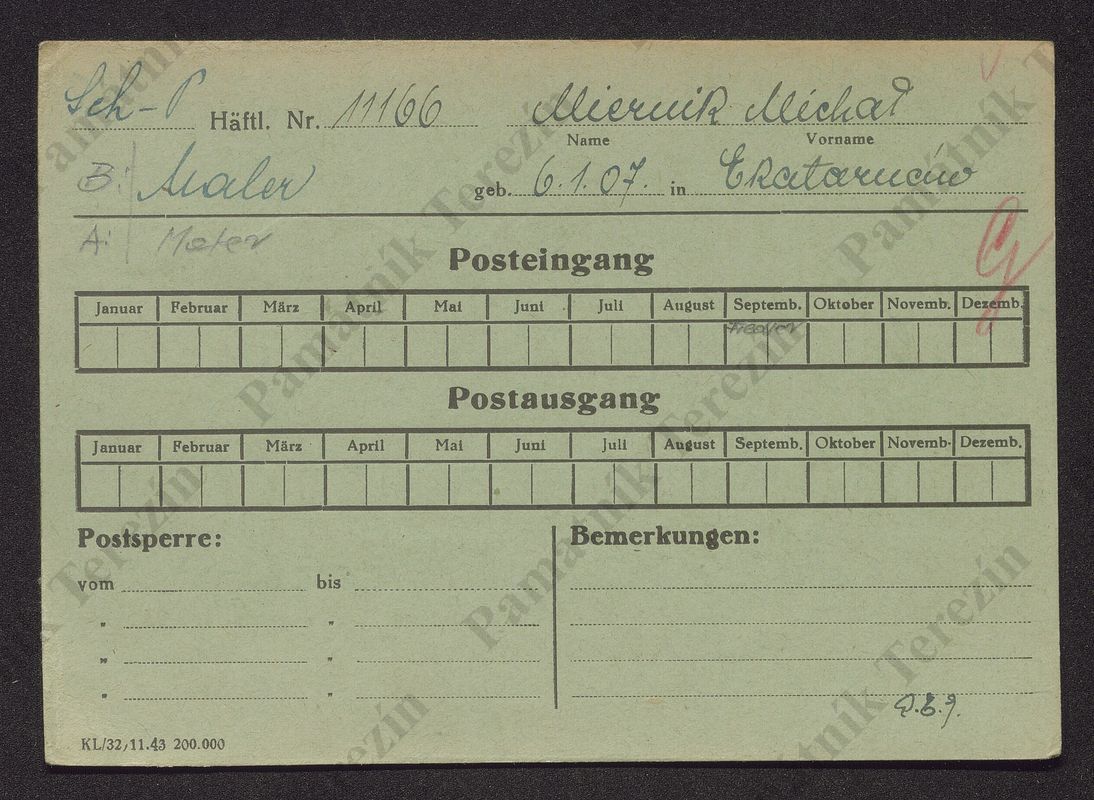 Sch-P Häftl. Nr. 11166 Miernik Michał
Name Vorname
B: Maler geb. 6.1.07. in
A: Maler
Posteingang
Januar Februar März April Mai Juni Juli August Septemb. Oktober Novemb. Dezemb.
Postausgang
Januar Februar März April Mai Juni Juli August Septemb. Oktober Novemb. Dezemb.
Postsperre: Bemerkungen:
vom bis
" "
" "
" "
KL/32/11.43 200.000
Památník Terezín